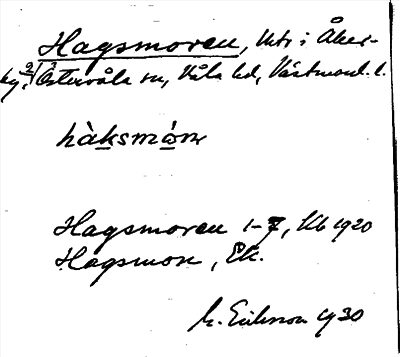 Hagsmoren, Utr i Åker-
by, Östervåla sn, Våla hd, Västmanl. l.
hàksmòn
Hagsmoren 1-7, Ub 1920
Hagsmon, Ek.
M. Eriksson 1930